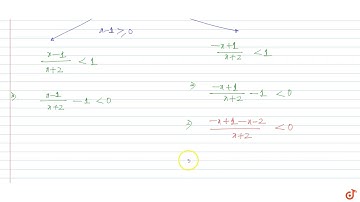 x-1 ≥ 0
(x-1)/(x+2) < 1
⇒ (x-1)/(x+2) - 1 < 0
(-x+1)/(x+2) < 1
⇒ (-x+1)/(x+2) - 1 < 0
⇒ (-x+1-x-2)/(x+2) < 0